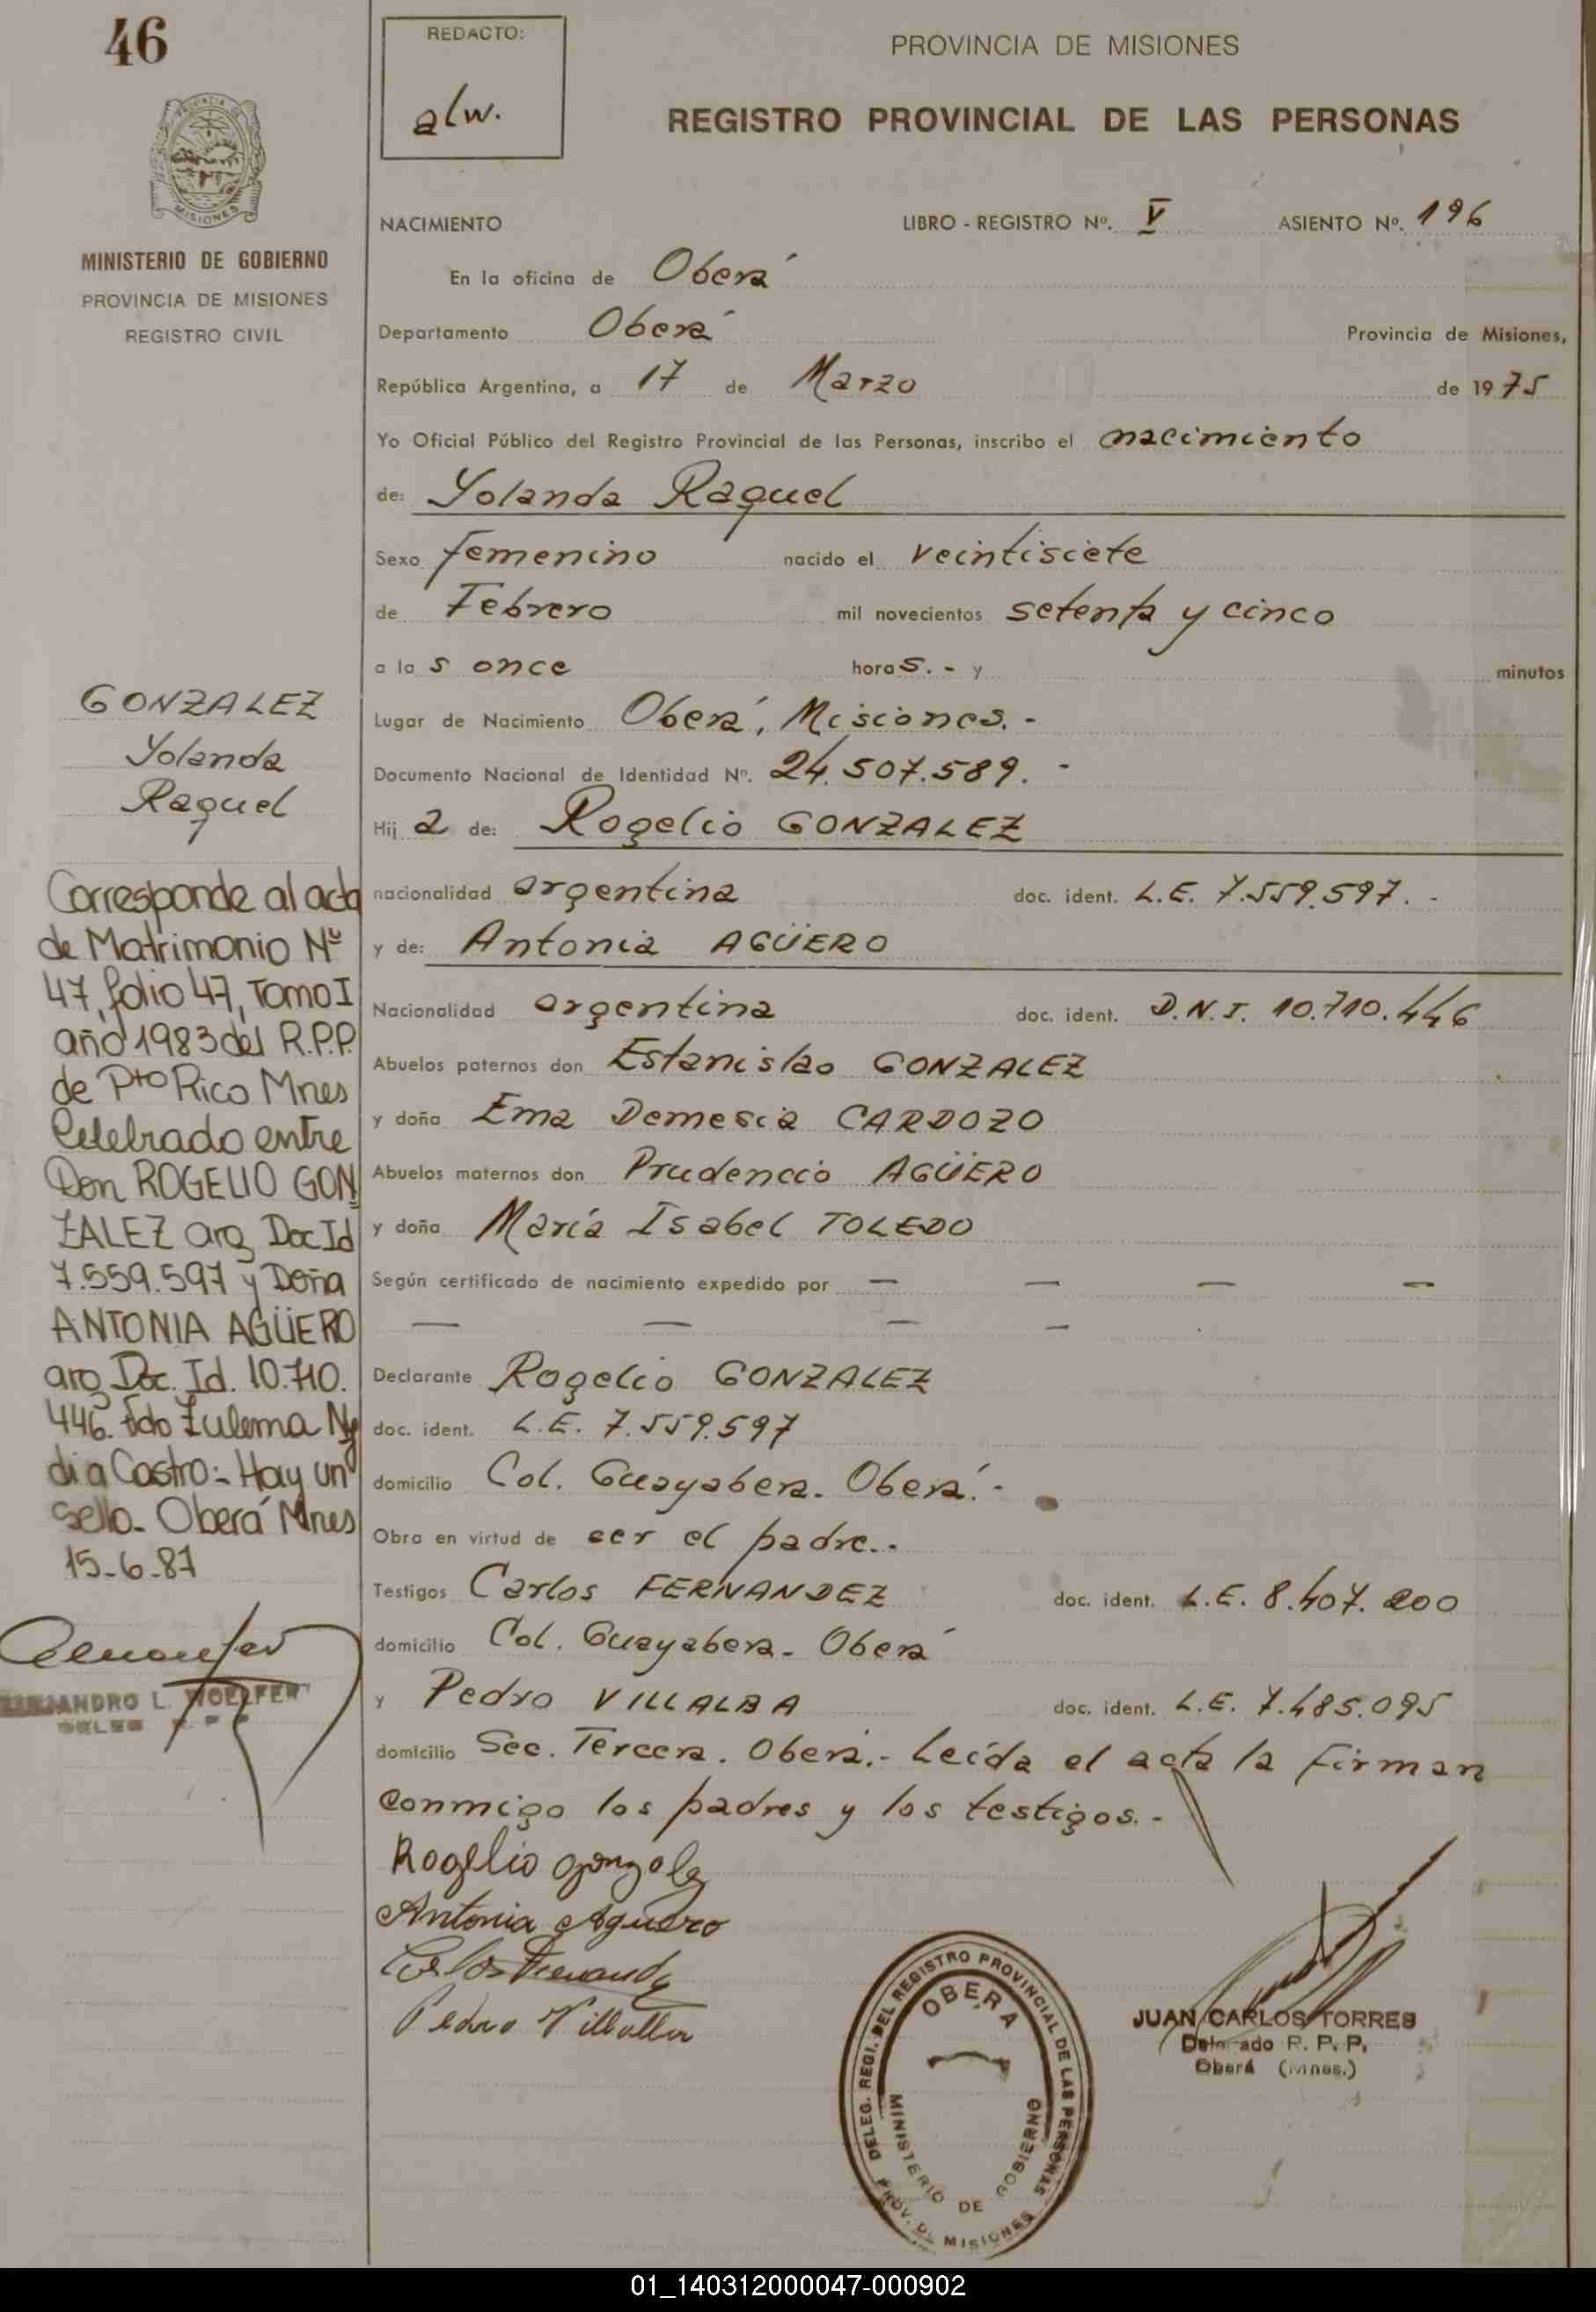 46
REDACTO:
alw.
PROVINCIA DE MISIONES
REGISTRO PROVINCIAL DE LAS PERSONAS
PROVINCIA DE
MISIONES
MINISTERIO DE GOBIERNO
PROVINCIA DE MISIONES
REGISTRO CIVIL
NACIMIENTO LIBRO - REGISTRO Nº. V ASIENTO Nº. 196
En la oficina de Oberá
Departamento Oberá Provincia de Misiones,
República Argentina, a 17 de Marzo de 1975
Yo Oficial Público del Registro Provincial de las Personas, inscribo el nacimiento
de: Yolanda Raquel
Sexo femenino nacido el veintisiete
de Febrero mil novecientos setenta y cinco
a las once horas.- y minutos
Lugar de Nacimiento Oberá, Misiones.-
Documento Nacional de Identidad Nº. 24.507.589.-
Hija de: Rogelio GONZALEZ
nacionalidad argentina doc. ident. L.E. 7.559.597.-
y de: Antonia AGÜERO
Nacionalidad argentina doc. ident. D.N.I. 10.710.446
Abuelos paternos don Estanislao GONZALEZ
y doña Ema Demesia CARDOZO
Abuelos maternos don Prudencio AGÜERO
y doña María Isabel TOLEDO
Según certificado de nacimiento expedido por — — — —
— — — —
Declarante Rogelio GONZALEZ
doc. ident. L.E. 7.559.597
domicilio Col. Guayabera. Oberá.-
Obra en virtud de ser el padre.-
Testigos Carlos FERNANDEZ doc. ident. L.E. 8.407.200
domicilio Col. Guayabera. Oberá
y Pedro VILLALBA doc. ident. L.E. 7.485.095
domicilio Sec. Tercera. Oberá.- Leída el acta la firman
conmigo los padres y los testigos.-
Rogelio gonzale
Antonia Aguero
Carlos Fernande
Pedro Villalba
GONZALEZ
Yolanda
Raquel
Corresponde al acta
de Matrimonio Nº
47, folio 47, Tomo I
año 1983 del R.P.P.
de Pto Rico Mnes
Celebrado entre
Don ROGELIO GON
ZALEZ arg Doc Id
7.559.597 y Doña
ANTONIA AGÜERO
arg Doc. Id. 10.710.
446. Fdo Zulema Ny
dia Castro:- Hay un
sello- Oberá Mnes
15-6-87
ALEJANDRO L. WOELFERT
DELEG. REGI. DEL REGISTRO PROVINCIAL DE LAS PERSONAS
OBERA
MINISTERIO DE GOBIERNO
PROV. DE MISIONES
JUAN CARLOS TORRES
Delegado R. P. P.
Oberá (Mnes.)
01_140312000047-000902